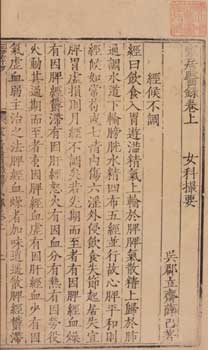 醫錄卷上 女科撮要
吳郡立齋薛己著
經候不調
經曰飲食入胃遊溢精氣上輸於脾脾氣散精上歸於肺
通調水道下輸膀胱水精四布五經並行故心脾平和則
經候如常苟或七情內傷六淫外侵飲食失節起居失宜
脾胃虛損則月經不調矣若先期而至者有因脾經血燥
有因脾經鬱滯有因肝經怒火有因血分有熱有因勞役
火動其過期而至者有因脾經血虛有因肝經血少有因
氣虛血弱主治之法脾經血燥者加味逍遙散脾經鬱滯